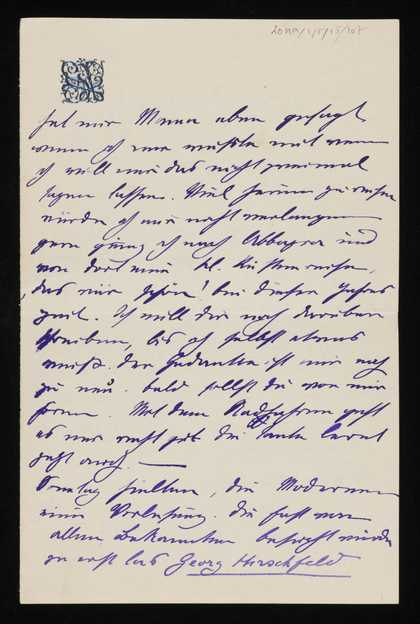 hat mir Mama eben gesagt,
wenn ich nur wüßte mit wem
ich will mir das nicht zweimal
sagen lassen. Viel herum zu reisen
würde ich mir nicht verlangen
gern ging ich nach Abbazia und
von dort eine kl. Küstenreise,
das wär schön! bei dieser Jahres
zeit. Ich will dir noch darüber
schreiben, bis ich selbst etwas
weiß. der Gedanke ist mir noch
zu neu. bald sollst du von mir
hören. Mit dem Radfahren geht
es mir recht gut die Tante lernt
jetzt auch. —
Sonntag hielten, die Modernen
eine Vorlesung. die fast von
allen Bekannten besucht wurde
zu erst las Georg Hirschfeld